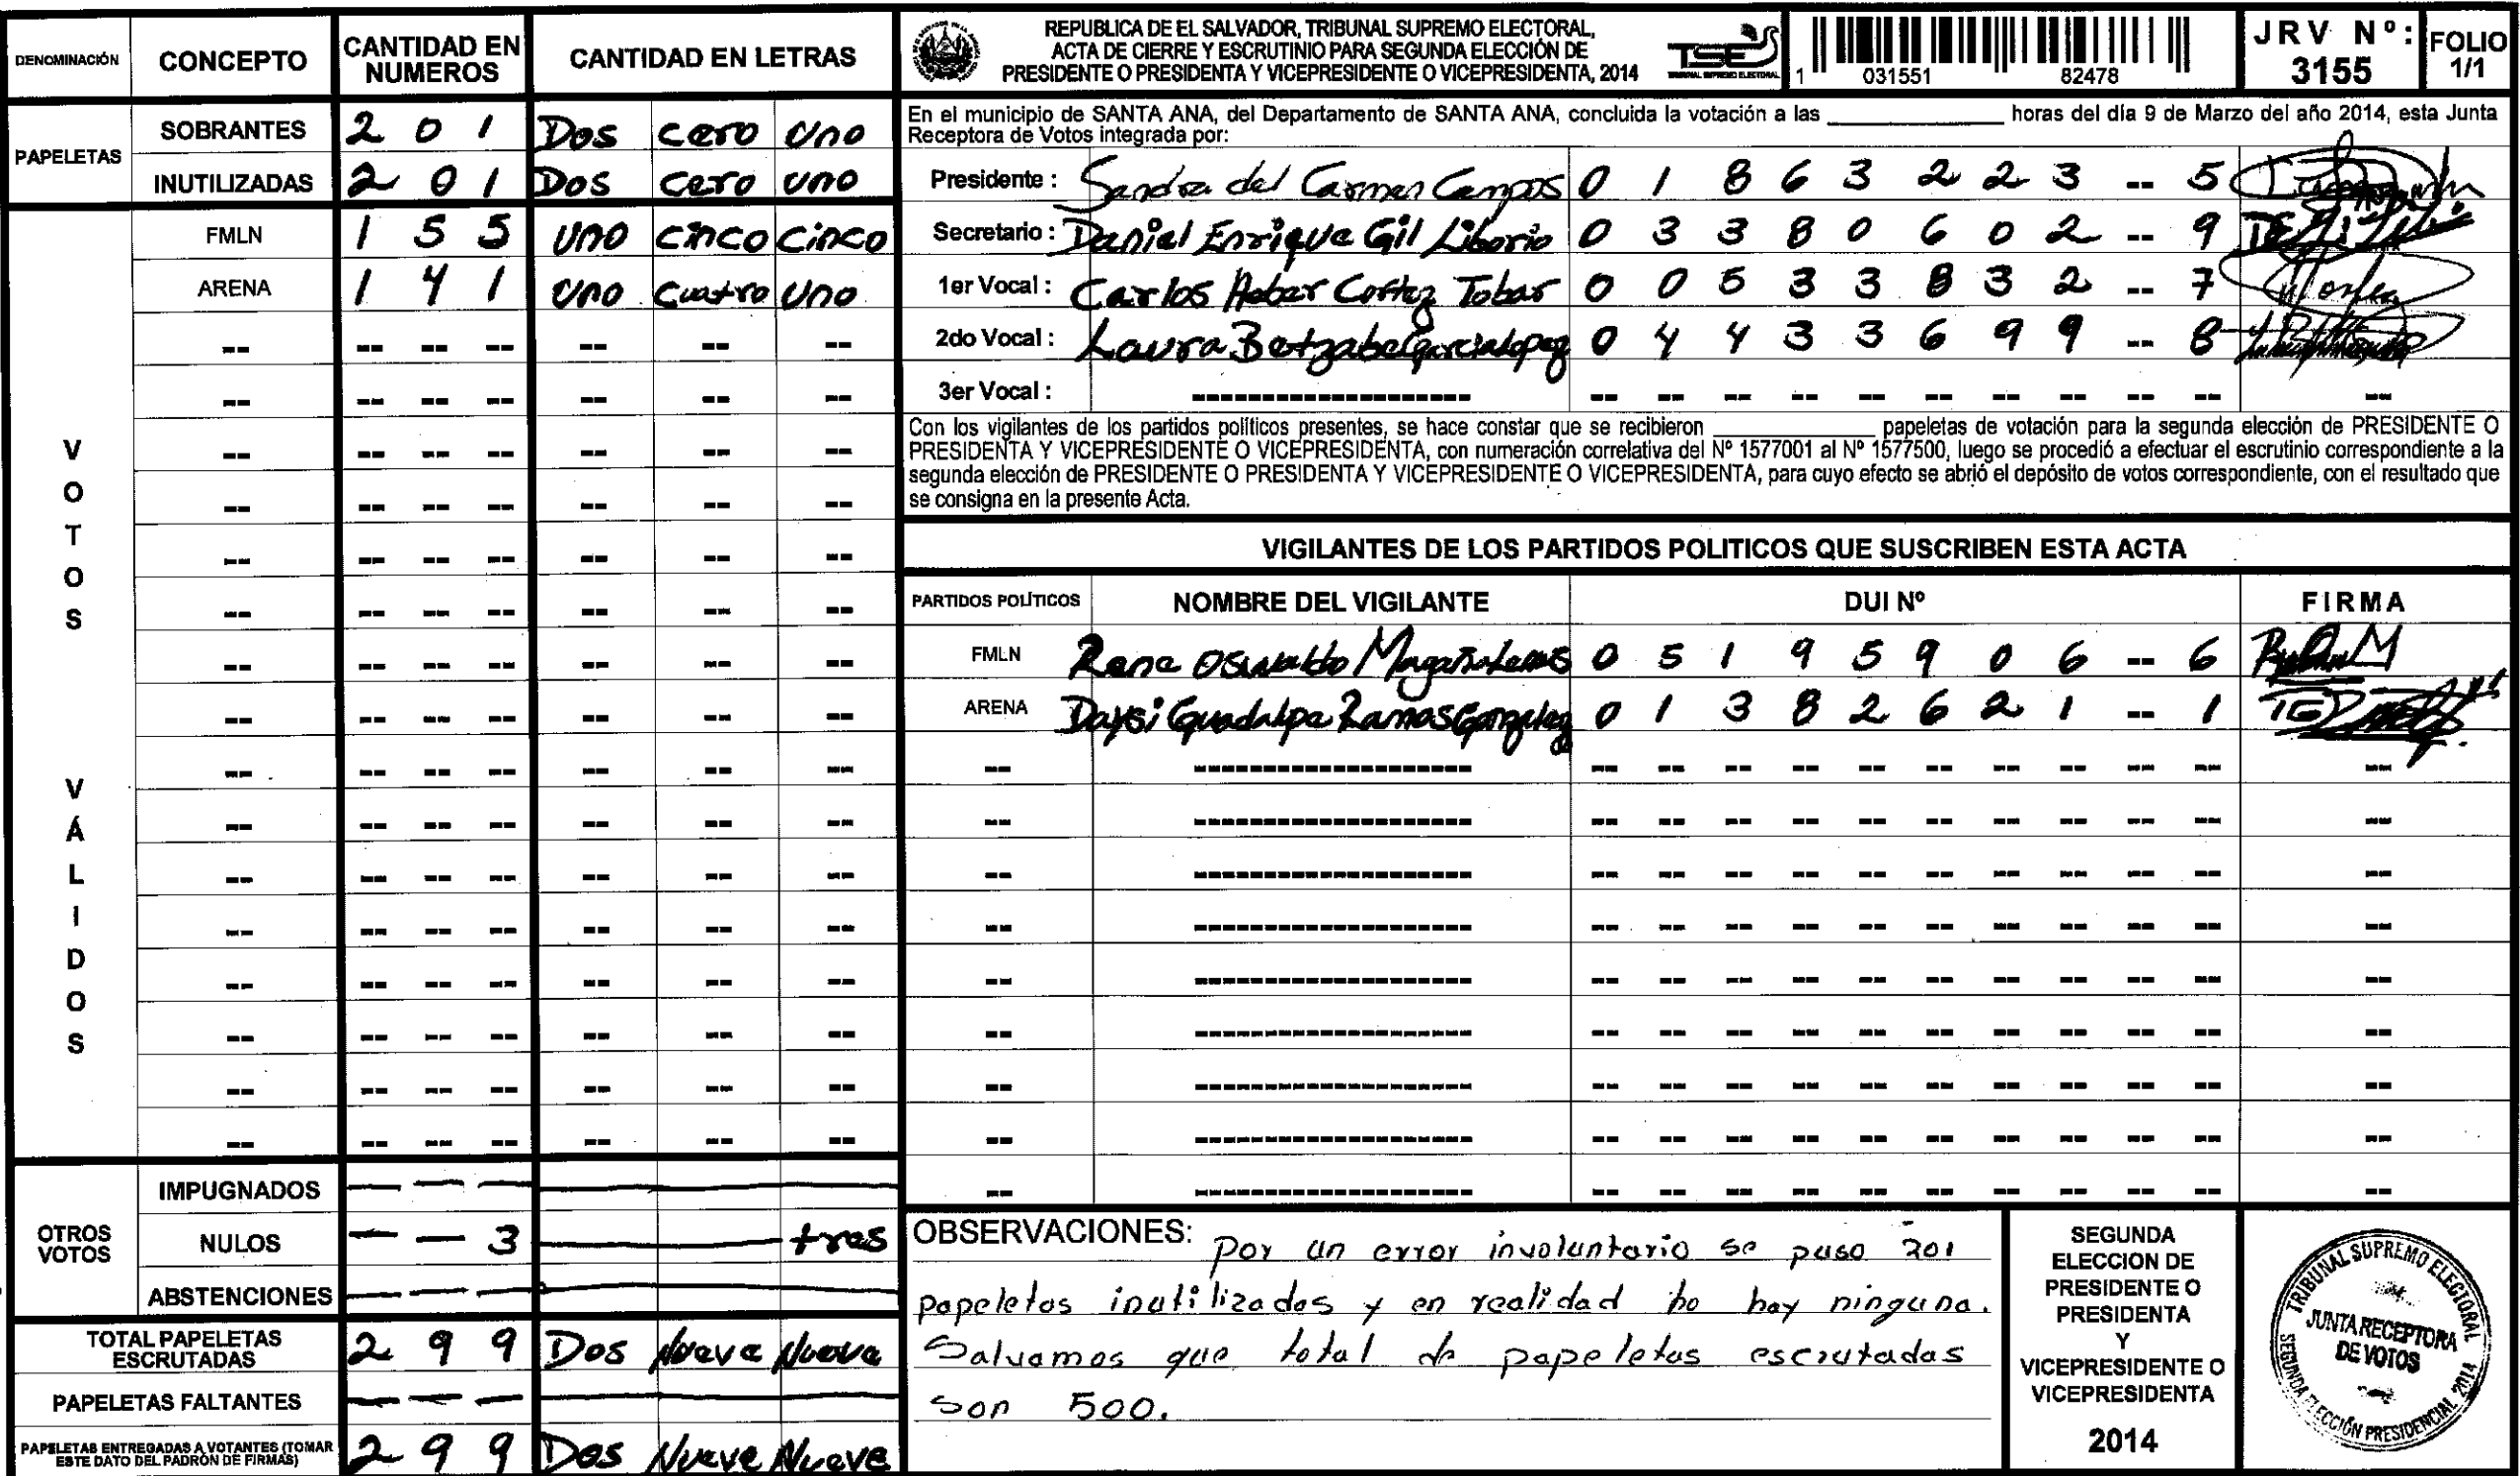 DENOMINACIÓN CONCEPTO CANTIDAD EN NUMEROS CANTIDAD EN LETRAS
PAPELETAS
SOBRANTES 2 0 1 Dos cero uno
INUTILIZADAS 2 0 1 Dos cero uno
VOTOS VÁLIDOS
FMLN 1 5 5 uno cinco cinco
ARENA 1 4 1 uno cuatro uno
OTROS VOTOS
IMPUGNADOS — — —
NULOS — — 3 tres
ABSTENCIONES — — —
TOTAL PAPELETAS ESCRUTADAS 2 9 9 Dos Nueve Nueve
PAPELETAS FALTANTES — — —
PAPELETAS ENTREGADAS A VOTANTES (TOMAR ESTE DATO DEL PADRÓN DE FIRMAS) 2 9 9 Dos Nueve Nueve
REPUBLICA DE EL SALVADOR, TRIBUNAL SUPREMO ELECTORAL,
ACTA DE CIERRE Y ESCRUTINIO PARA SEGUNDA ELECCIÓN DE
PRESIDENTE O PRESIDENTA Y VICEPRESIDENTE O VICEPRESIDENTA, 2014
TSE
TRIBUNAL SUPREMO ELECTORAL
1 031551 82478
JRV Nº: 3155
FOLIO 1/1
En el municipio de SANTA ANA, del Departamento de SANTA ANA, concluida la votación a las ____ horas del día 9 de Marzo del año 2014, esta Junta
Receptora de Votos integrada por:
Presidente : Sandra del Carmen Campos 0 1 8 6 3 2 2 3 -- 5
Secretario : Daniel Enrique Gil Liborio 0 3 3 8 0 6 0 2 -- 9
1er Vocal : Carlos Heber Cortez Tobar 0 0 5 3 3 8 3 2 -- 7
2do Vocal : Laura Betzabe Garcia Lopez 0 4 4 3 3 6 9 9 -- 8
3er Vocal :
Con los vigilantes de los partidos políticos presentes, se hace constar que se recibieron ____ papeletas de votación para la segunda elección de PRESIDENTE O
PRESIDENTA Y VICEPRESIDENTE O VICEPRESIDENTA, con numeración correlativa del Nº 1577001 al Nº 1577500, luego se procedió a efectuar el escrutinio correspondiente a la
segunda elección de PRESIDENTE O PRESIDENTA Y VICEPRESIDENTE O VICEPRESIDENTA, para cuyo efecto se abrió el depósito de votos correspondiente, con el resultado que
se consigna en la presente Acta.
VIGILANTES DE LOS PARTIDOS POLITICOS QUE SUSCRIBEN ESTA ACTA
PARTIDOS POLÍTICOS NOMBRE DEL VIGILANTE DUI Nº FIRMA
FMLN Rene Oswaldo Magaña 0 5 1 9 5 9 0 6 -- 6
ARENA Daysi Guadalpe Ramos Gonzalez 0 1 3 8 2 6 2 1 -- 1
OBSERVACIONES: por un error involuntario se puso 201
papeletas inutilizadas y en realidad no hay ninguna.
Salvamos que total de papeletas escrutadas
son 500.
SEGUNDA
ELECCION DE
PRESIDENTE O
PRESIDENTA
Y
VICEPRESIDENTE O
VICEPRESIDENTA
2014
TRIBUNAL SUPREMO ELECTORAL
JUNTA RECEPTORA
DE VOTOS
SEGUNDA ELECCIÓN PRESIDENCIAL 2014